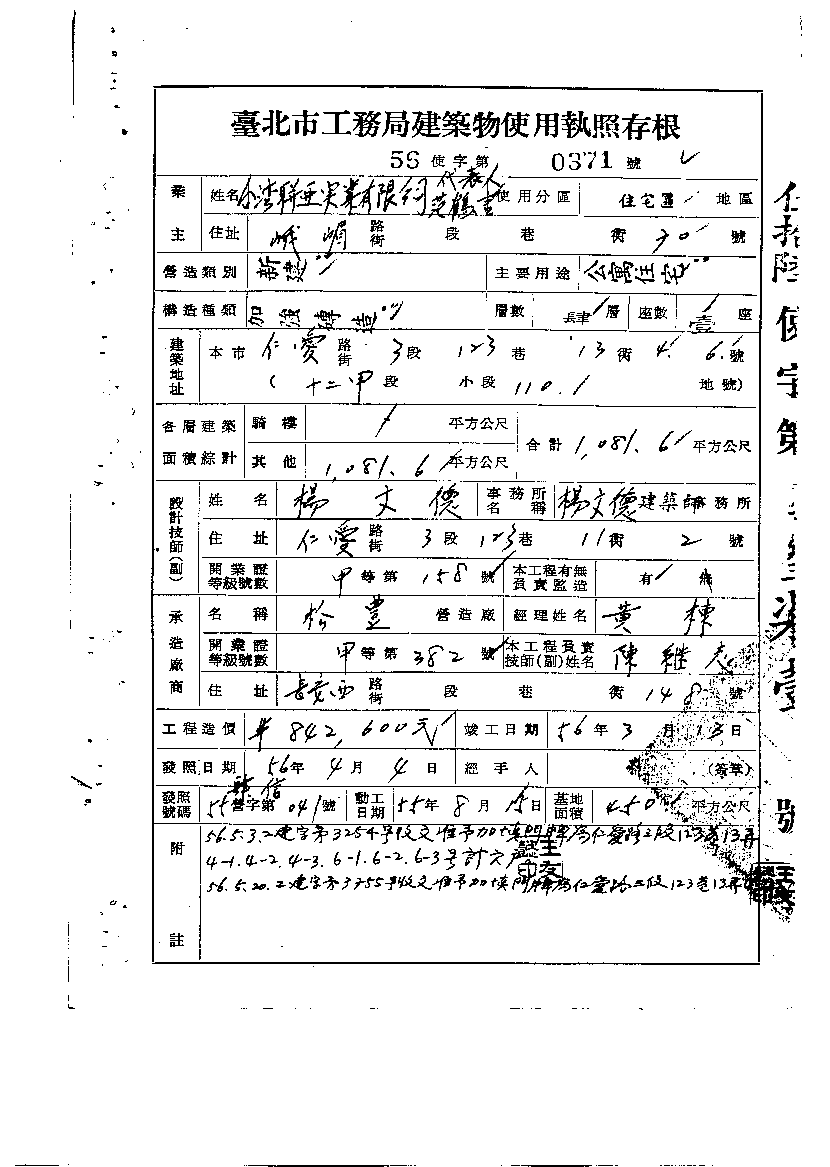 臺北市工務局建築物使用執照存根
56 使字第 0371 號
業主 姓名 台灣聯亞實業有限公司 代表人 范鶴言 使用分區 住宅區 地區
住址 峨嵋 路街 段 巷 衖 30 號
營造類別 新建 主要用途 公寓住宅
構造種類 加強磚造 層數 肆 層 座數 壹 座
建築地址 本市 仁愛 路街 3 段 123 巷 13 衖 4.6. 號
( 十二甲 段 小段 110.1 地號)
各層建築面積綜計 騎樓 平方公尺 合計 1,081.6 平方公尺
其他 1,081.6 平方公尺
設計技師(副) 姓名 楊文德 事務所名稱 楊文德建築師事務所
住址 仁愛 路街 3 段 123 巷 11 衖 2 號
開業證等級號數 甲 等第 158 號 本工程有無負責監造 有 無
承造廠商 名稱 松豐 營造廠 經理姓名 黃棟
開業證等級號數 甲 等第 382 號 本工程負責技師(副)姓名 陳繼志
住址 長安西 路街 段 巷 衖 148 號
工程造價 842,600元 竣工日期 56 年 3 月 13 日
發照日期 56 年 4 月 4 日 經手人 (簽章)
發照號碼 55 營字第 041 號 動工日期 55 年 8 月 15 日 基地面積 450 平方公尺
附註 56.5.3.2建字第3254號收文准予加填門牌為仁愛路三段123巷13弄
4-1.4-2.4-3.6-1.6-2.6-3號計六戶
56.5.20.2建字第3755號收文准予加填門牌為仁愛路三段123巷13弄
伍拾陸使字第 號